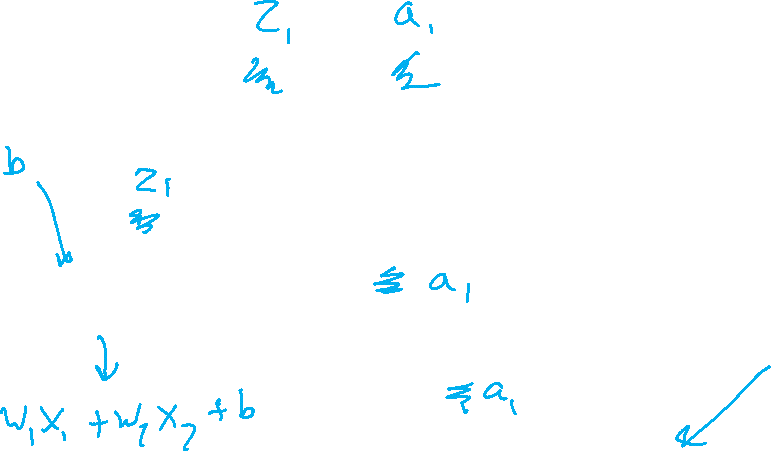 z₁ a₁
b
z₁
a₁
a₁
w₁x₁ + w₂x₂ + b